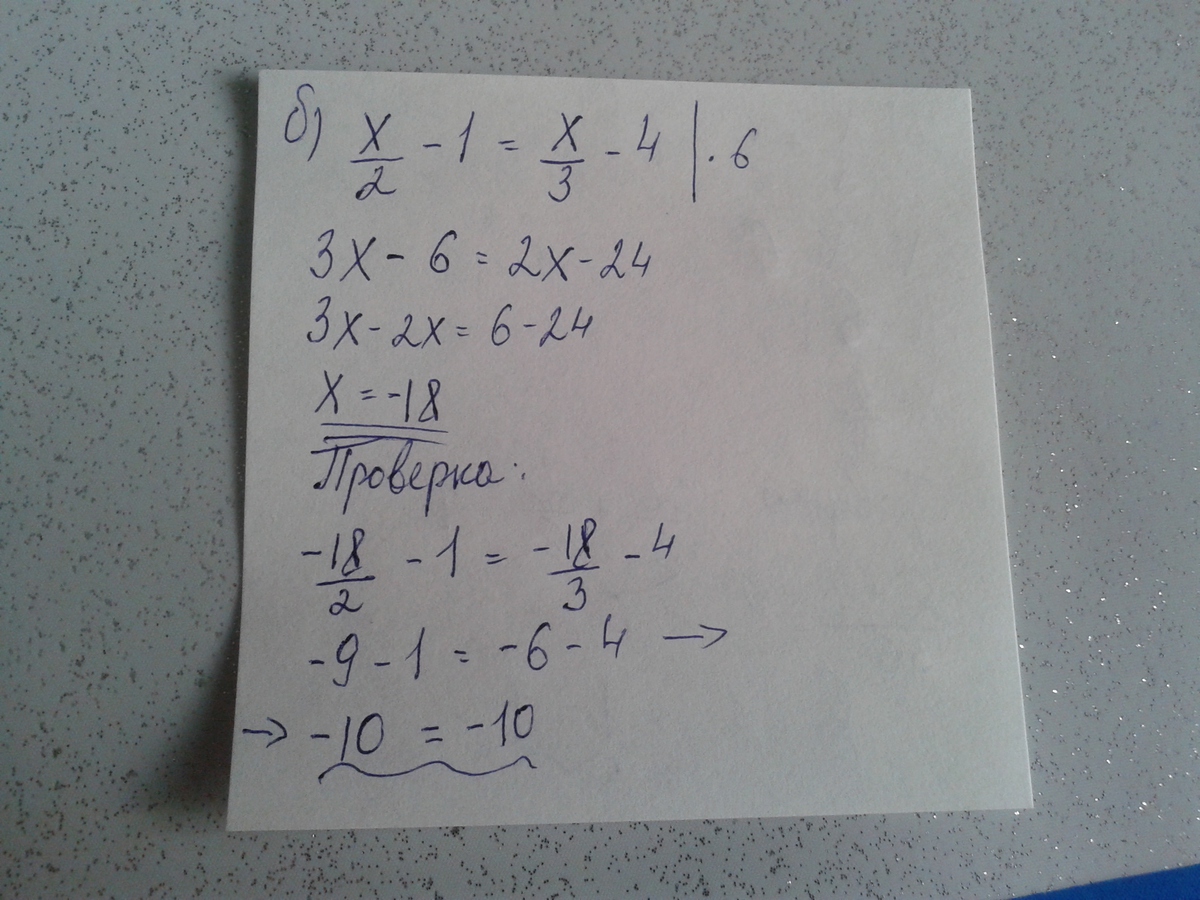 б) x/2 - 1 = x/3 - 4 | · 6
3x - 6 = 2x - 24
3x - 2x = 6 - 24
x = -18
Проверка:
-18/2 - 1 = -18/3 - 4
-9 - 1 = -6 - 4 →
→ -10 = -10